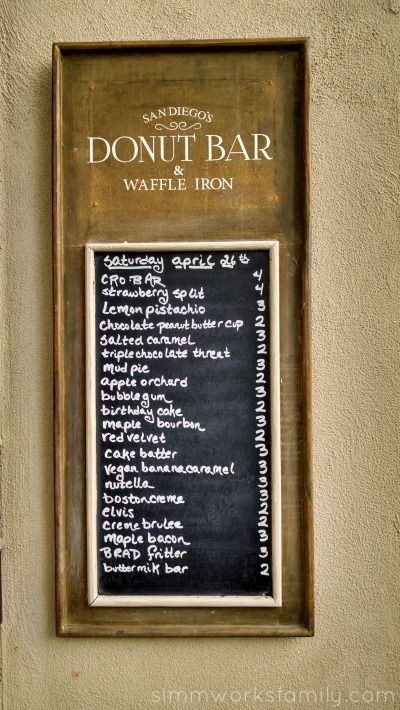 SAN DIEGO'S
DONUT BAR
&
WAFFLE IRON
saturday april 26th
CRO BAR 4
strawberry split 4
Lemon pistachio 3
chocolate peanut butter cup 2
salted caramel 3
triple chocolate threat 2
mud pie 3
apple orchard 2
bubblegum 3
birthday cake 2
maple bourbon 3
red velvet 2
cake batter 3
vegan banana caramel 3
nutella 3
boston creme 3
elvis 2
creme brulee 2
Maple bacon 3
BRAD fritter 3
buttermilk bar 2
simmworksfamily.com